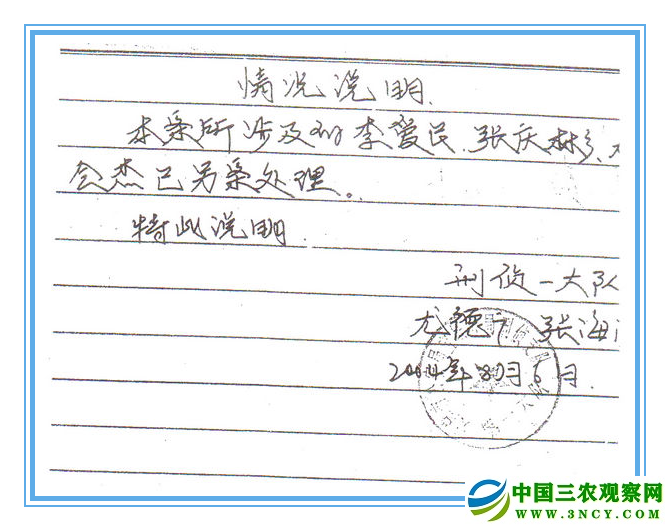 情况说明.
本案所涉及的李爱民、张庆彬、
会杰已另案处理。
特此说明.
刑侦一大队
尤德 张海
2004年 月6日.
中国三农观察网
WWW.3NCY.COM